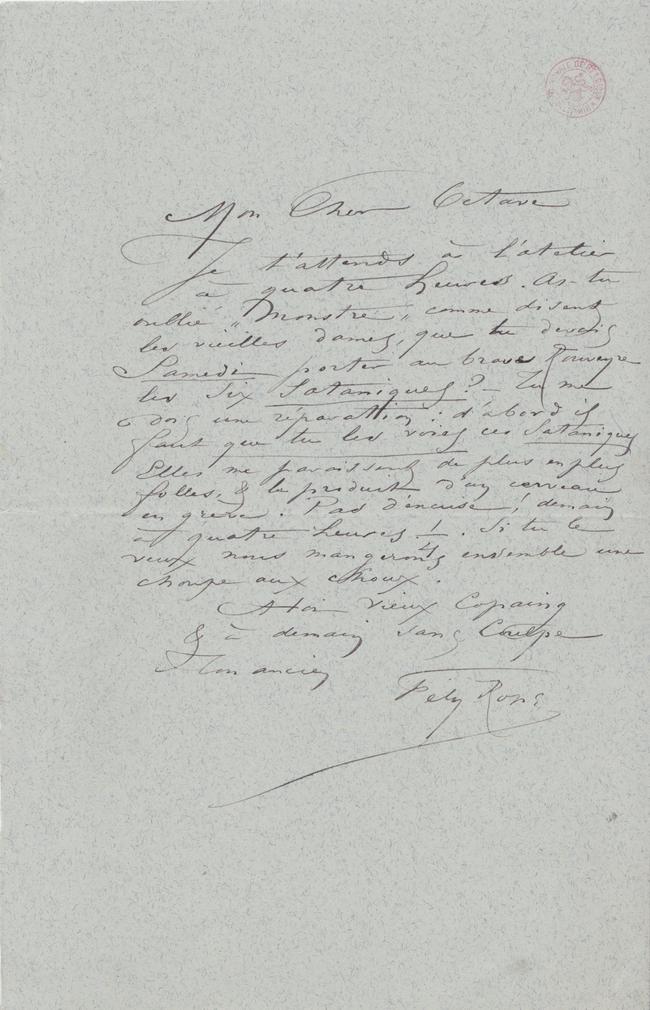 Mon Cher Octave
Je t'attends à l'atelier
à quatre heures. As-tu
oublié „Monstre„ comme disent
les vieilles dames, que tu devais
Samedi porter au brave Rouveyre
les six Sataniques? – Tu me
dois une réparation: d'abord il
faut que tu les voies ces Sataniques
Elles me paraissent de plus en plus
folles, & le produit d'un cerveau
en grève. Pas d'excuse! demain
à quatre heures!. Si tu le
veux nous mangerons ensemble une
choupe aux choux.
A toi vieux Copaing
& à demain sans Coulpe
Ton ancien
Fély Rops